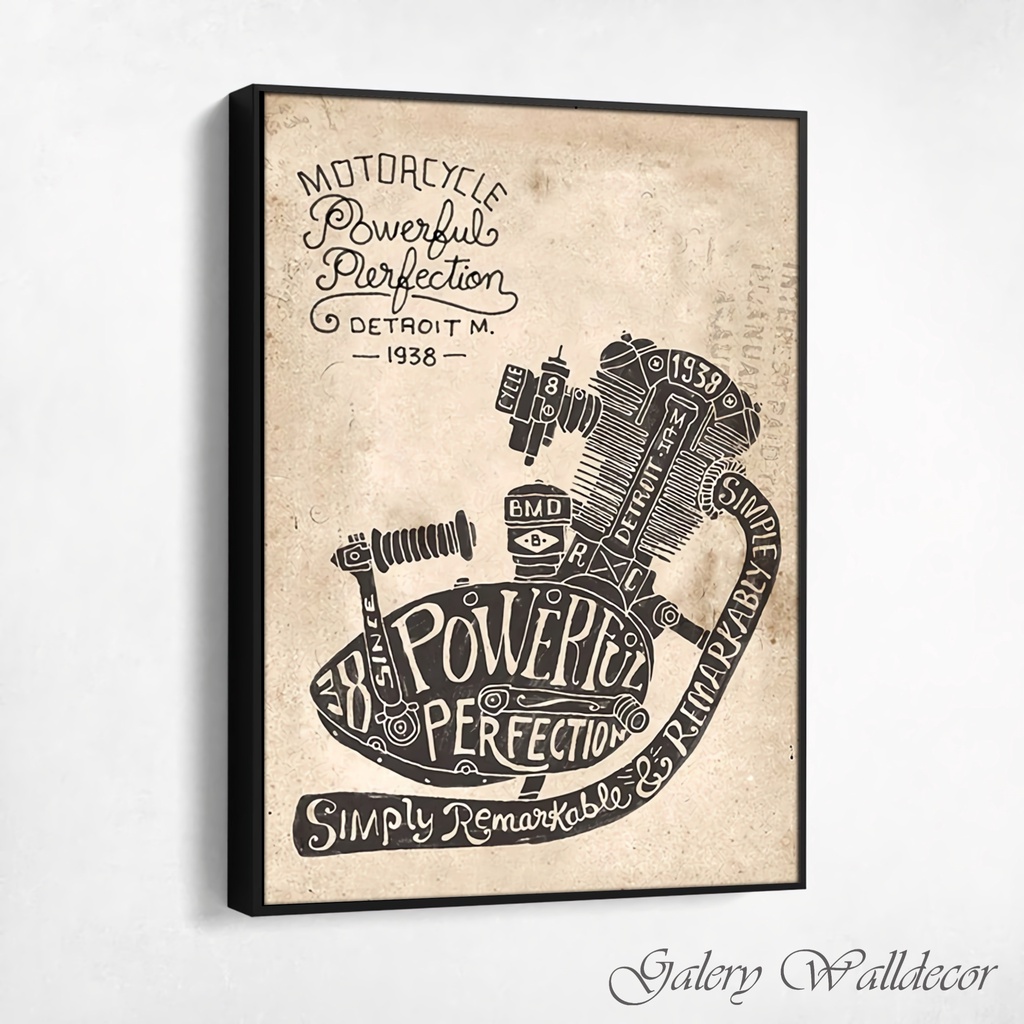 MOTORCYCLE
Powerful
Perfection
DETROIT M.
— 1938 —
CYCLE
8
1938
MFT.
DETROIT
BMD
B
R
C
SINCE
38
POWERFUL
PERFECTION
SIMPLE
& REMARKABLY
Simply Remarkable
Galery Walldecor